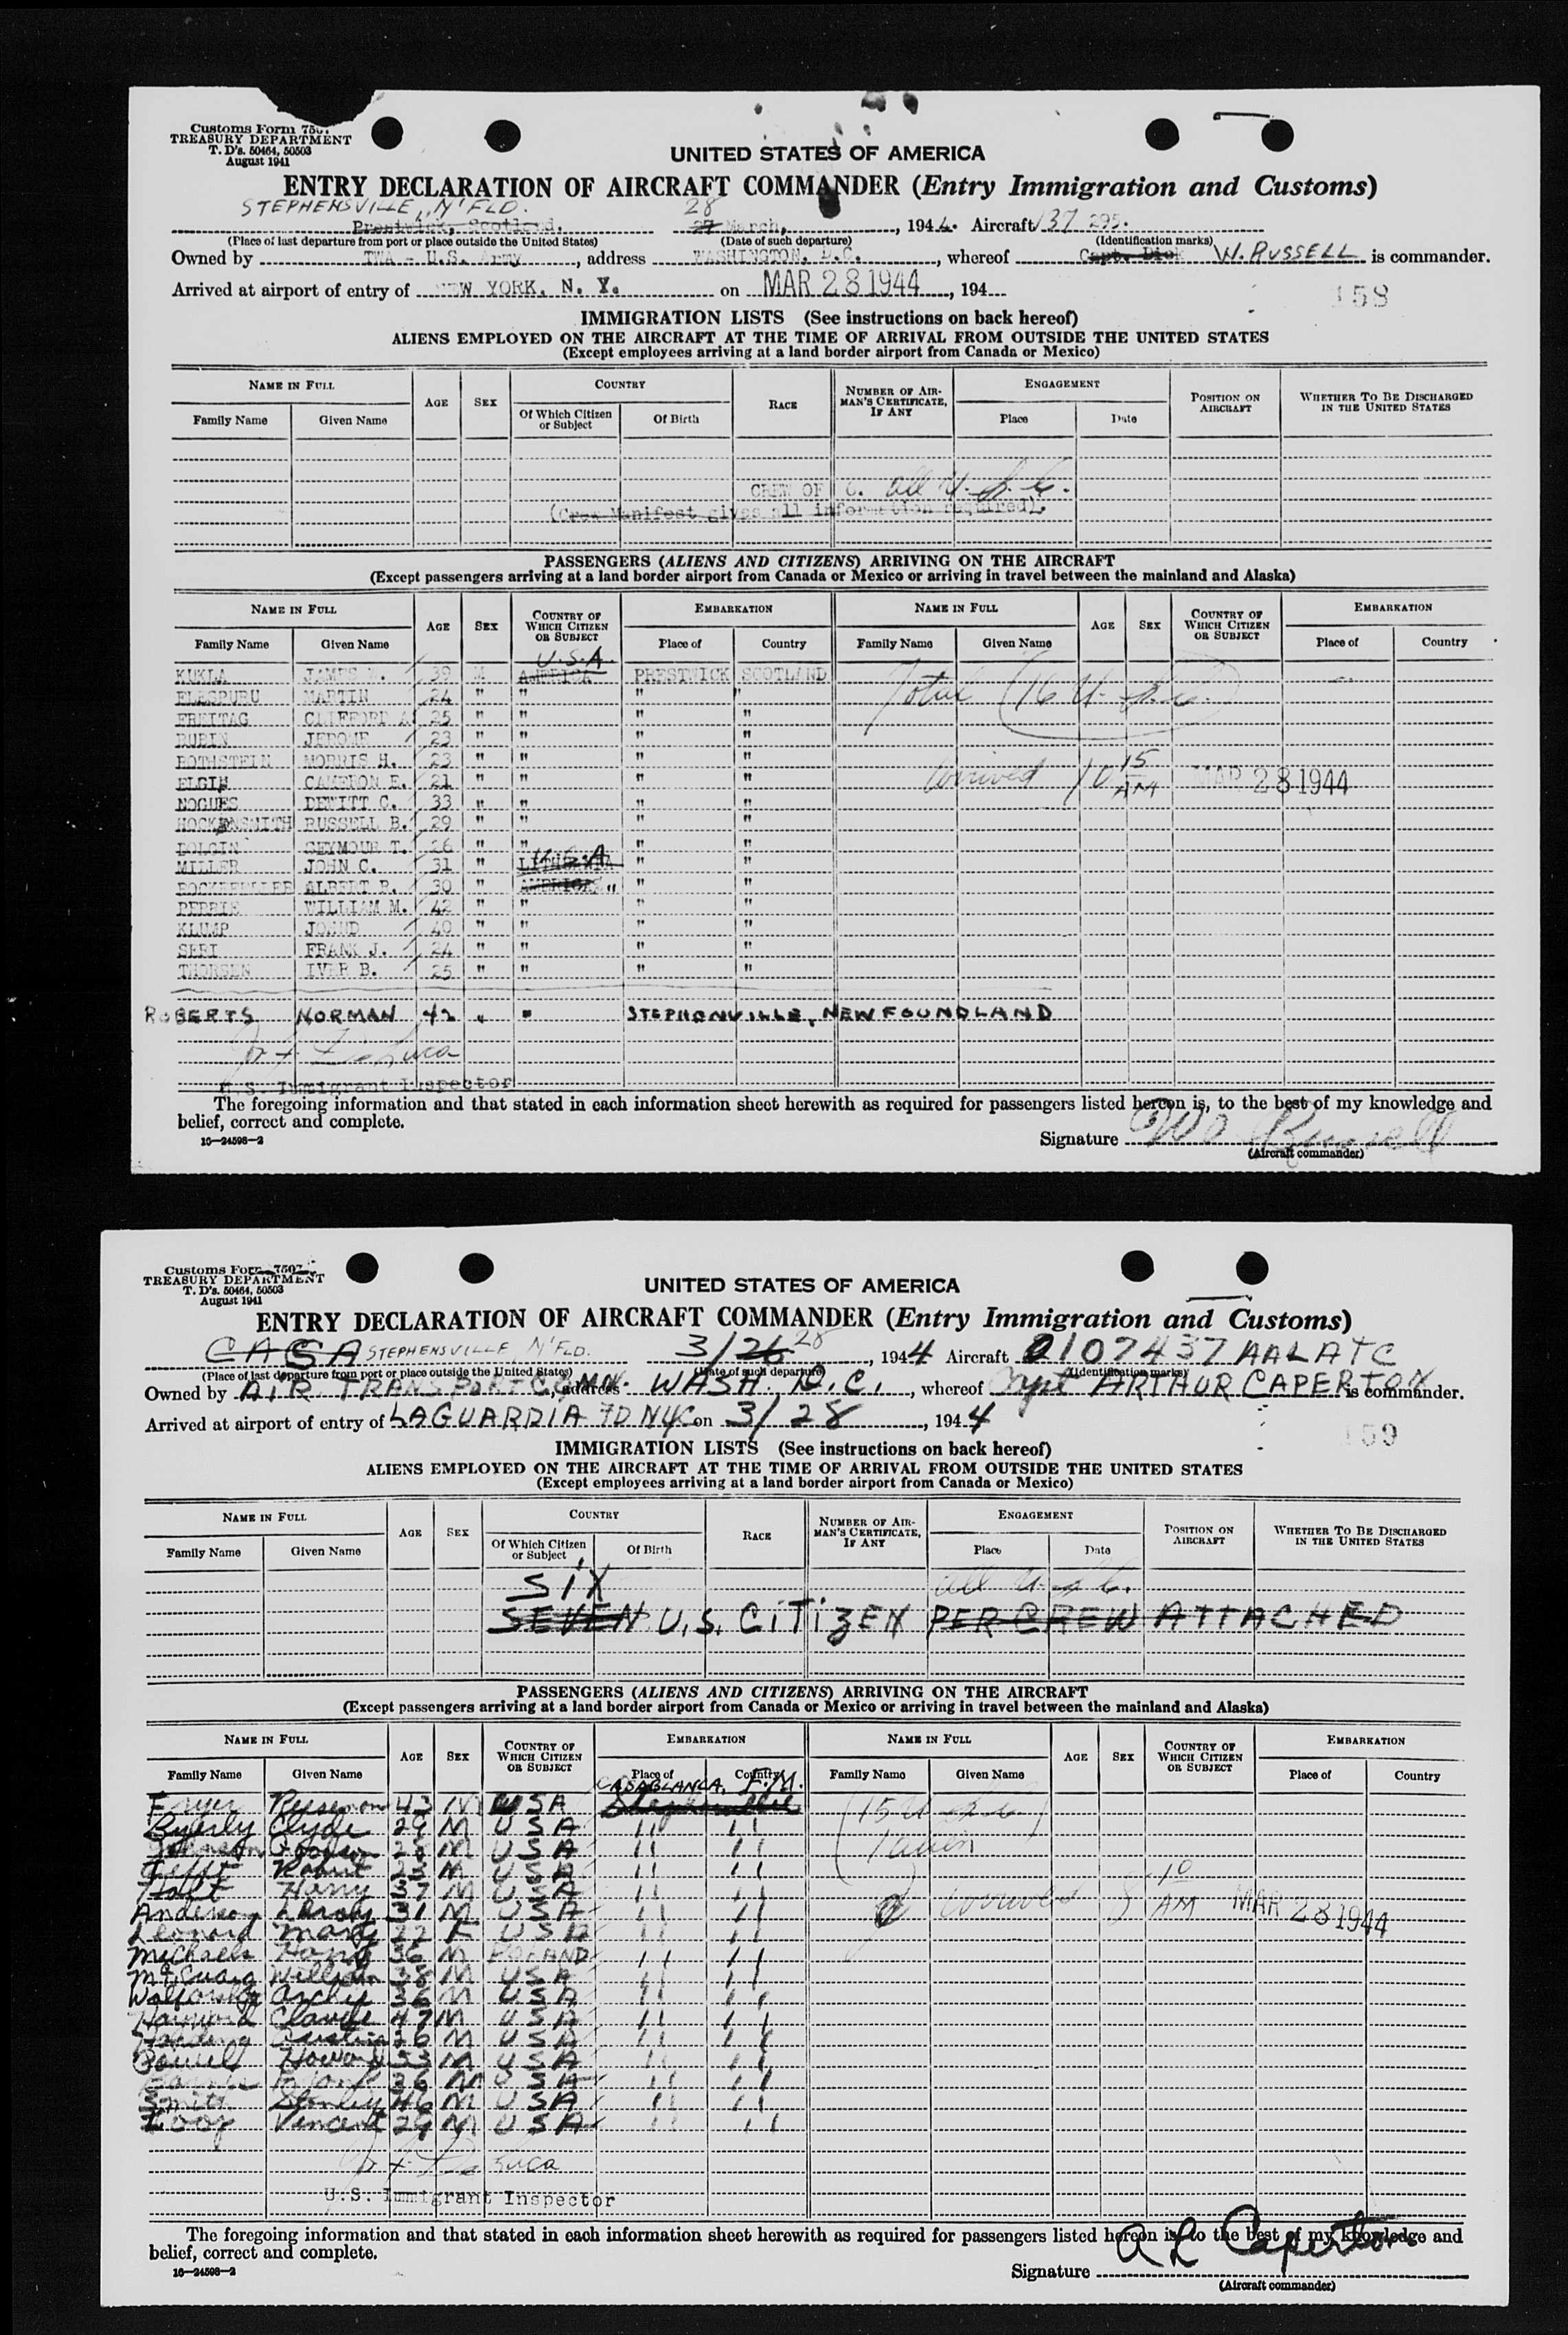 Customs Form 750
TREASURY DEPARTMENT
T. D's. 50464, 50503
August 1941
UNITED STATES OF AMERICA
ENTRY DECLARATION OF AIRCRAFT COMMANDER (Entry Immigration and Customs)
STEPHENSVILLE, N'FLD. 28
Prestwick, Scotland. 27 March, , 1944. Aircraft 137 295.
(Place of last departure from port or place outside the United States) (Date of such departure) (Identification marks)
Owned by TWA - U.S. Army , address WASHINGTON, D.C. , whereof Capt. Dick W. RUSSELL is commander.
Arrived at airport of entry of NEW YORK, N. Y. on MAR 28 1944 , 194
158
IMMIGRATION LISTS (See instructions on back hereof)
ALIENS EMPLOYED ON THE AIRCRAFT AT THE TIME OF ARRIVAL FROM OUTSIDE THE UNITED STATES
(Except employees arriving at a land border airport from Canada or Mexico)
NAME IN FULL AGE SEX COUNTRY RACE NUMBER OF AIRMAN'S CERTIFICATE, IF ANY ENGAGEMENT POSITION ON AIRCRAFT WHETHER TO BE DISCHARGED IN THE UNITED STATES
Family Name Given Name Of Which Citizen or Subject Of Birth Place Date
CREW OF 6. all U. S. C.
(Crew Manifest gives all information required).
PASSENGERS (ALIENS AND CITIZENS) ARRIVING ON THE AIRCRAFT
(Except passengers arriving at a land border airport from Canada or Mexico or arriving in travel between the mainland and Alaska)
NAME IN FULL AGE SEX COUNTRY OF WHICH CITIZEN OR SUBJECT EMBARKATION NAME IN FULL AGE SEX COUNTRY OF WHICH CITIZEN OR SUBJECT EMBARKATION
Family Name Given Name Place of Country Family Name Given Name Place of Country
U.S.A.
KUKLA JAMES 39 M AMERICA PRESTWICK SCOTLAND Total (16 U. S. C.)
MARTIN 24 " " " "
FREITAG CLIFFORD A. 25 " " " "
RUBIN JEROME 23 " " " "
ROTHSTEIN MORRIS H. 23 " " " "
ELGIN CAMERON E. 21 " " " " arrived 10 15 AM MAR 28 1944
NOGUES DEWITT C. 33 " " " "
HOCKENSMITH RUSSELL B. 29 " " " "
DOLGIN SEYMOUR T. 26 " " " "
U.S.A
MILLER JOHN C. 31 " LITHUANIA " "
ROCKEFELLER ALBERT R. 30 " AMERICA " " "
PERRIE WILLIAM M. 42 " " " "
KLUMP 40 " " " "
SERI FRANK J. 24 " " " "
THORSEN IVER B. 25 " " " "
ROBERTS NORMAN 42 " " STEPHENVILLE, NEWFOUNDLAND
De Luca
U.S. Immigrant Inspector
The foregoing information and that stated in each information sheet herewith as required for passengers listed hereon is, to the best of my knowledge and
belief, correct and complete.
16—24598-2
Signature W Russell
(Aircraft commander)
Customs Form 7507
TREASURY DEPARTMENT
T. D's. 50464, 50503
August 1941
UNITED STATES OF AMERICA
ENTRY DECLARATION OF AIRCRAFT COMMANDER (Entry Immigration and Customs)
CASA STEPHENSVILLE, N'FLD. 3/26 28 , 1944 Aircraft 0107437 AAL ATC
(Place of last departure from port or place outside the United States) (Date of such departure) (Identification marks)
Owned by AIR TRANSPORT COMM. , address WASH. D.C. , whereof Capt ARTHUR CAPERTON is commander.
Arrived at airport of entry of LAGUARDIA FD NYC on 3/28 , 1944
159
IMMIGRATION LISTS (See instructions on back hereof)
ALIENS EMPLOYED ON THE AIRCRAFT AT THE TIME OF ARRIVAL FROM OUTSIDE THE UNITED STATES
(Except employees arriving at a land border airport from Canada or Mexico)
NAME IN FULL AGE SEX COUNTRY RACE NUMBER OF AIRMAN'S CERTIFICATE, IF ANY ENGAGEMENT POSITION ON AIRCRAFT WHETHER TO BE DISCHARGED IN THE UNITED STATES
Family Name Given Name Of Which Citizen or Subject Of Birth Place Date
SIX all U. S. C.
SEVEN U.S. CITIZEN PER CREW ATTACHED
PASSENGERS (ALIENS AND CITIZENS) ARRIVING ON THE AIRCRAFT
(Except passengers arriving at a land border airport from Canada or Mexico or arriving in travel between the mainland and Alaska)
NAME IN FULL AGE SEX COUNTRY OF WHICH CITIZEN OR SUBJECT EMBARKATION NAME IN FULL AGE SEX COUNTRY OF WHICH CITIZEN OR SUBJECT EMBARKATION
Family Name Given Name Place of Country Family Name Given Name Place of Country
CASABLANCA, F.M.
43 M USA Stephenville (15 U S C)
Byerly Clyde 29 M USA " "
Johnson 28 M USA " " 1 alien
Robert 23 M USA " "
Holt Harry 37 M USA " "
Anderson Leroy 31 M USA " " arrived 8 10 AM MAR 28 1944
Leonard Mary 22 F USA " "
Michaels 36 M POLAND " "
McCuaig William 38 M USA " "
Archie 36 M USA " "
Claude 47 M USA " "
26 M USA " "
Powell Howard 33 M USA " "
36 M USA " "
Smith Stanley 46 M USA " "
Loop Vincent 29 M USA " "
De Luca
U.S. Immigrant Inspector
The foregoing information and that stated in each information sheet herewith as required for passengers listed hereon is, to the best of my knowledge and
belief, correct and complete.
16—24598-2
Signature A L Caperton
(Aircraft commander)